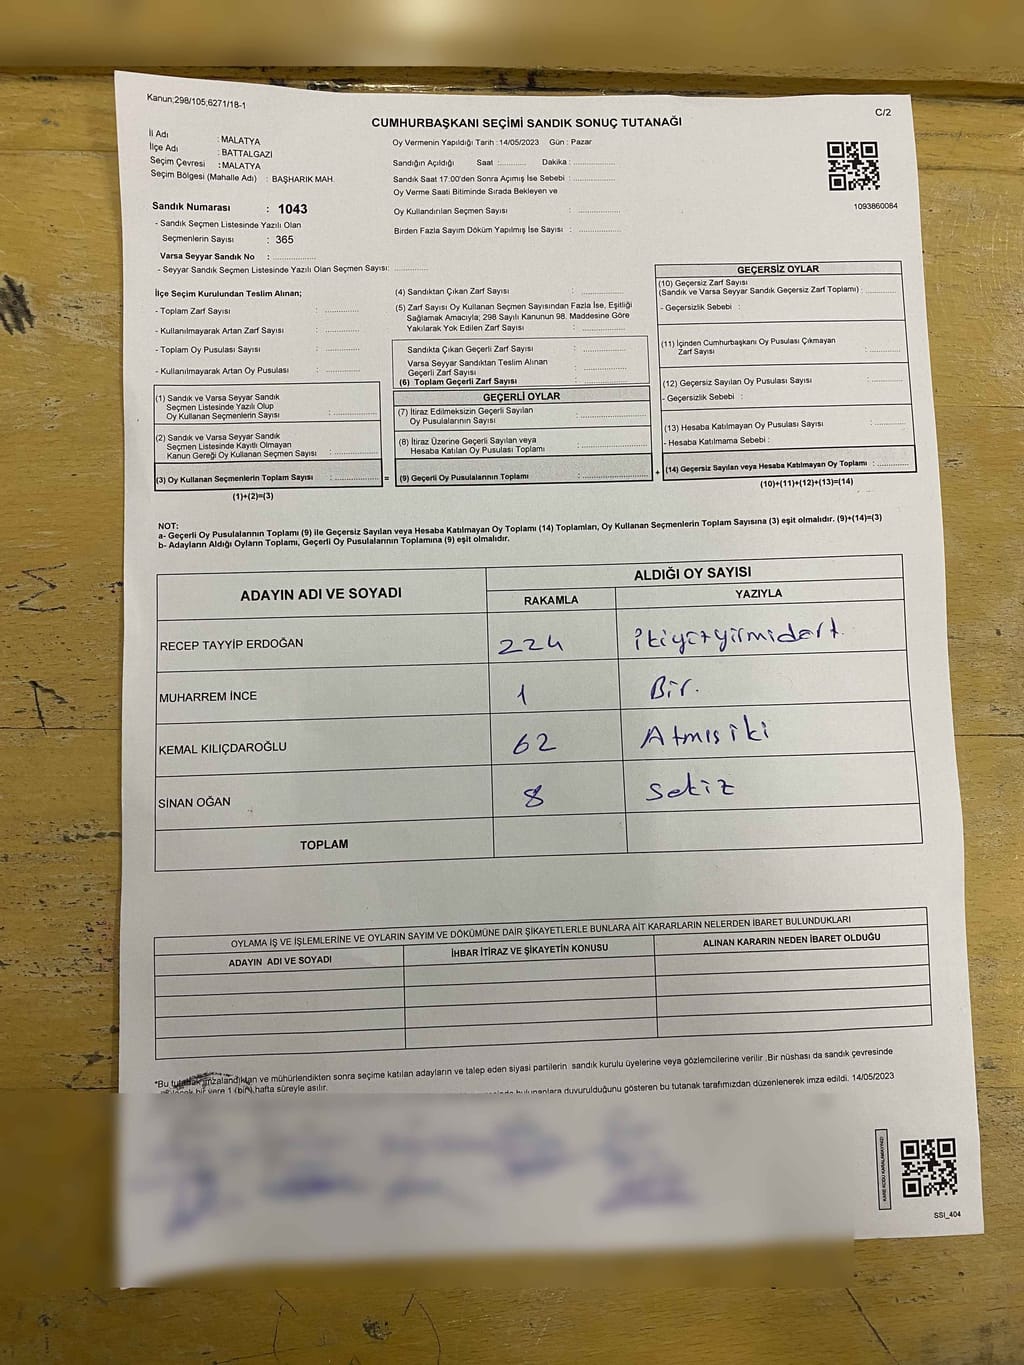 Kanun;298/105;6271/18-1
C/2
CUMHURBAŞKANI SEÇİMİ SANDIK SONUÇ TUTANAĞI
İl Adı : MALATYA
İlçe Adı : BATTALGAZİ
Seçim Çevresi : MALATYA
Seçim Bölgesi (Mahalle Adı) : BAŞHARIK MAH.
Sandık Numarası : 1043
- Sandık Seçmen Listesinde Yazılı Olan
Seçmenlerin Sayısı : 365
Varsa Seyyar Sandık No : ..............
- Seyyar Sandık Seçmen Listesinde Yazılı Olan Seçmen Sayısı: ............
Oy Vermenin Yapıldığı Tarih :14/05/2023 Gün : Pazar
Sandığın Açıldığı Saat :......... Dakika :..............
Sandık Saat 17:00'den Sonra Açımış İse Sebebi : ..............
Oy Verme Saati Bitiminde Sırada Bekleyen ve
Oy Kullandırılan Seçmen Sayısı : ..............
Birden Fazla Sayım Döküm Yapılmış İse Sayısı : ..............
1093860084
İlçe Seçim Kurulundan Teslim Alınan;
- Toplam Zarf Sayısı : ............
- Kullanılmayarak Artan Zarf Sayısı : ............
- Toplam Oy Pusulası Sayısı : ............
- Kullanılmayarak Artan Oy Pusulası : ............
(1) Sandık ve Varsa Seyyar Sandık
Seçmen Listesinde Yazılı Olup
Oy Kullanan Seçmenlerin Sayısı : ..............
(2) Sandık ve Varsa Seyyar Sandık
Seçmen Listesinde Kayıtlı Olmayan
Kanun Gereği Oy Kullanan Seçmen Sayısı : ..............
(3) Oy Kullanan Seçmenlerin Toplam Sayısı : .............. =
(1)+(2)=(3)
(4) Sandıktan Çıkan Zarf Sayısı : ..............
(5) Zarf Sayısı Oy Kullanan Seçmen Sayısından Fazla İse, Eşitliği
Sağlamak Amacıyla; 298 Sayılı Kanunun 98. Maddesine Göre
Yakılarak Yok Edilen Zarf Sayısı : ..............
Sandıkta Çıkan Geçerli Zarf Sayısı : ..............
Varsa Seyyar Sandıktan Teslim Alınan
Geçerli Zarf Sayısı : ..............
(6) Toplam Geçerli Zarf Sayısı : ..............
GEÇERLİ OYLAR
(7) İtiraz Edilmeksizin Geçerli Sayılan
Oy Pusulasının Sayısı : ..............
(8) İtiraz Üzerine Geçerli Sayılan veya
Hesaba Katılan Oy Pusulası Toplamı : ..............
(9) Geçerli Oy Pusulalarının Toplamı : .............. +
GEÇERSİZ OYLAR
(10) Geçersiz Zarf Sayısı
(Sandık ve Varsa Seyyar Sandık Geçersiz Zarf Toplamı) : ..........
- Geçersizlik Sebebi :
(11) İçinden Cumhurbaşkanı Oy Pusulası Çıkmayan
Zarf Sayısı : ..........
(12) Geçersiz Sayılan Oy Pusulası Sayısı : ..........
- Geçersizlik Sebebi :
(13) Hesaba Katılmayan Oy Pusulası Sayısı : ..........
- Hesaba Katılmama Sebebi :
(14) Geçersiz Sayılan veya Hesaba Katılmayan Oy Toplamı : ..........
(10)+(11)+(12)+(13)=(14)
NOT:
a- Geçerli Oy Pusulalarının Toplamı (9) ile Geçersiz Sayılan veya Hesaba Katılmayan Oy Toplamı (14) Toplamları, Oy Kullanan Seçmenlerin Toplam Sayısına (3) eşit olmalıdır. (9)+(14)=(3)
b- Adayların Aldığı Oyların Toplamı, Geçerli Oy Pusulalarının Toplamına (9) eşit olmalıdır.
ADAYIN ADI VE SOYADI
ALDIĞI OY SAYISI
RAKAMLA YAZIYLA
RECEP TAYYİP ERDOĞAN 224 ikiyüzyirmidört.
MUHARREM İNCE 1 Bir.
KEMAL KILIÇDAROĞLU 62 Atmış iki
SİNAN OĞAN 8 Sekiz
TOPLAM
OYLAMA İŞ VE İŞLEMLERİNE VE OYLARIN SAYIM VE DÖKÜMÜNE DAİR ŞİKAYETLERLE BUNLARA AİT KARARLARIN NELERDEN İBARET BULUNDUKLARI
ADAYIN ADI VE SOYADI İHBAR İTİRAZ VE ŞİKAYETİN KONUSU ALINAN KARARIN NEDEN İBARET OLDUĞU
*Bu tutanak imzalandıktan ve mühürlendikten sonra seçime katılan adayların ve talep eden siyasi partilerin sandık kurulu üyelerine veya gözlemcilerine verilir .Bir nüshası da sandık çevresinde
bir yere 1 (bir) hafta süreyle asılır.
duyurulduğunu gösteren bu tutanak tarafımızdan düzenlenerek imza edildi. 14/05/2023
SSİ_404